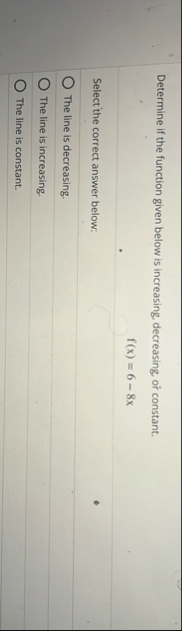 Determine if the function given below is increasing, decreasing, or constant.
f(x) = 6 − 8x
Select the correct answer below:
The line is decreasing.
The line is increasing.
The line is constant.